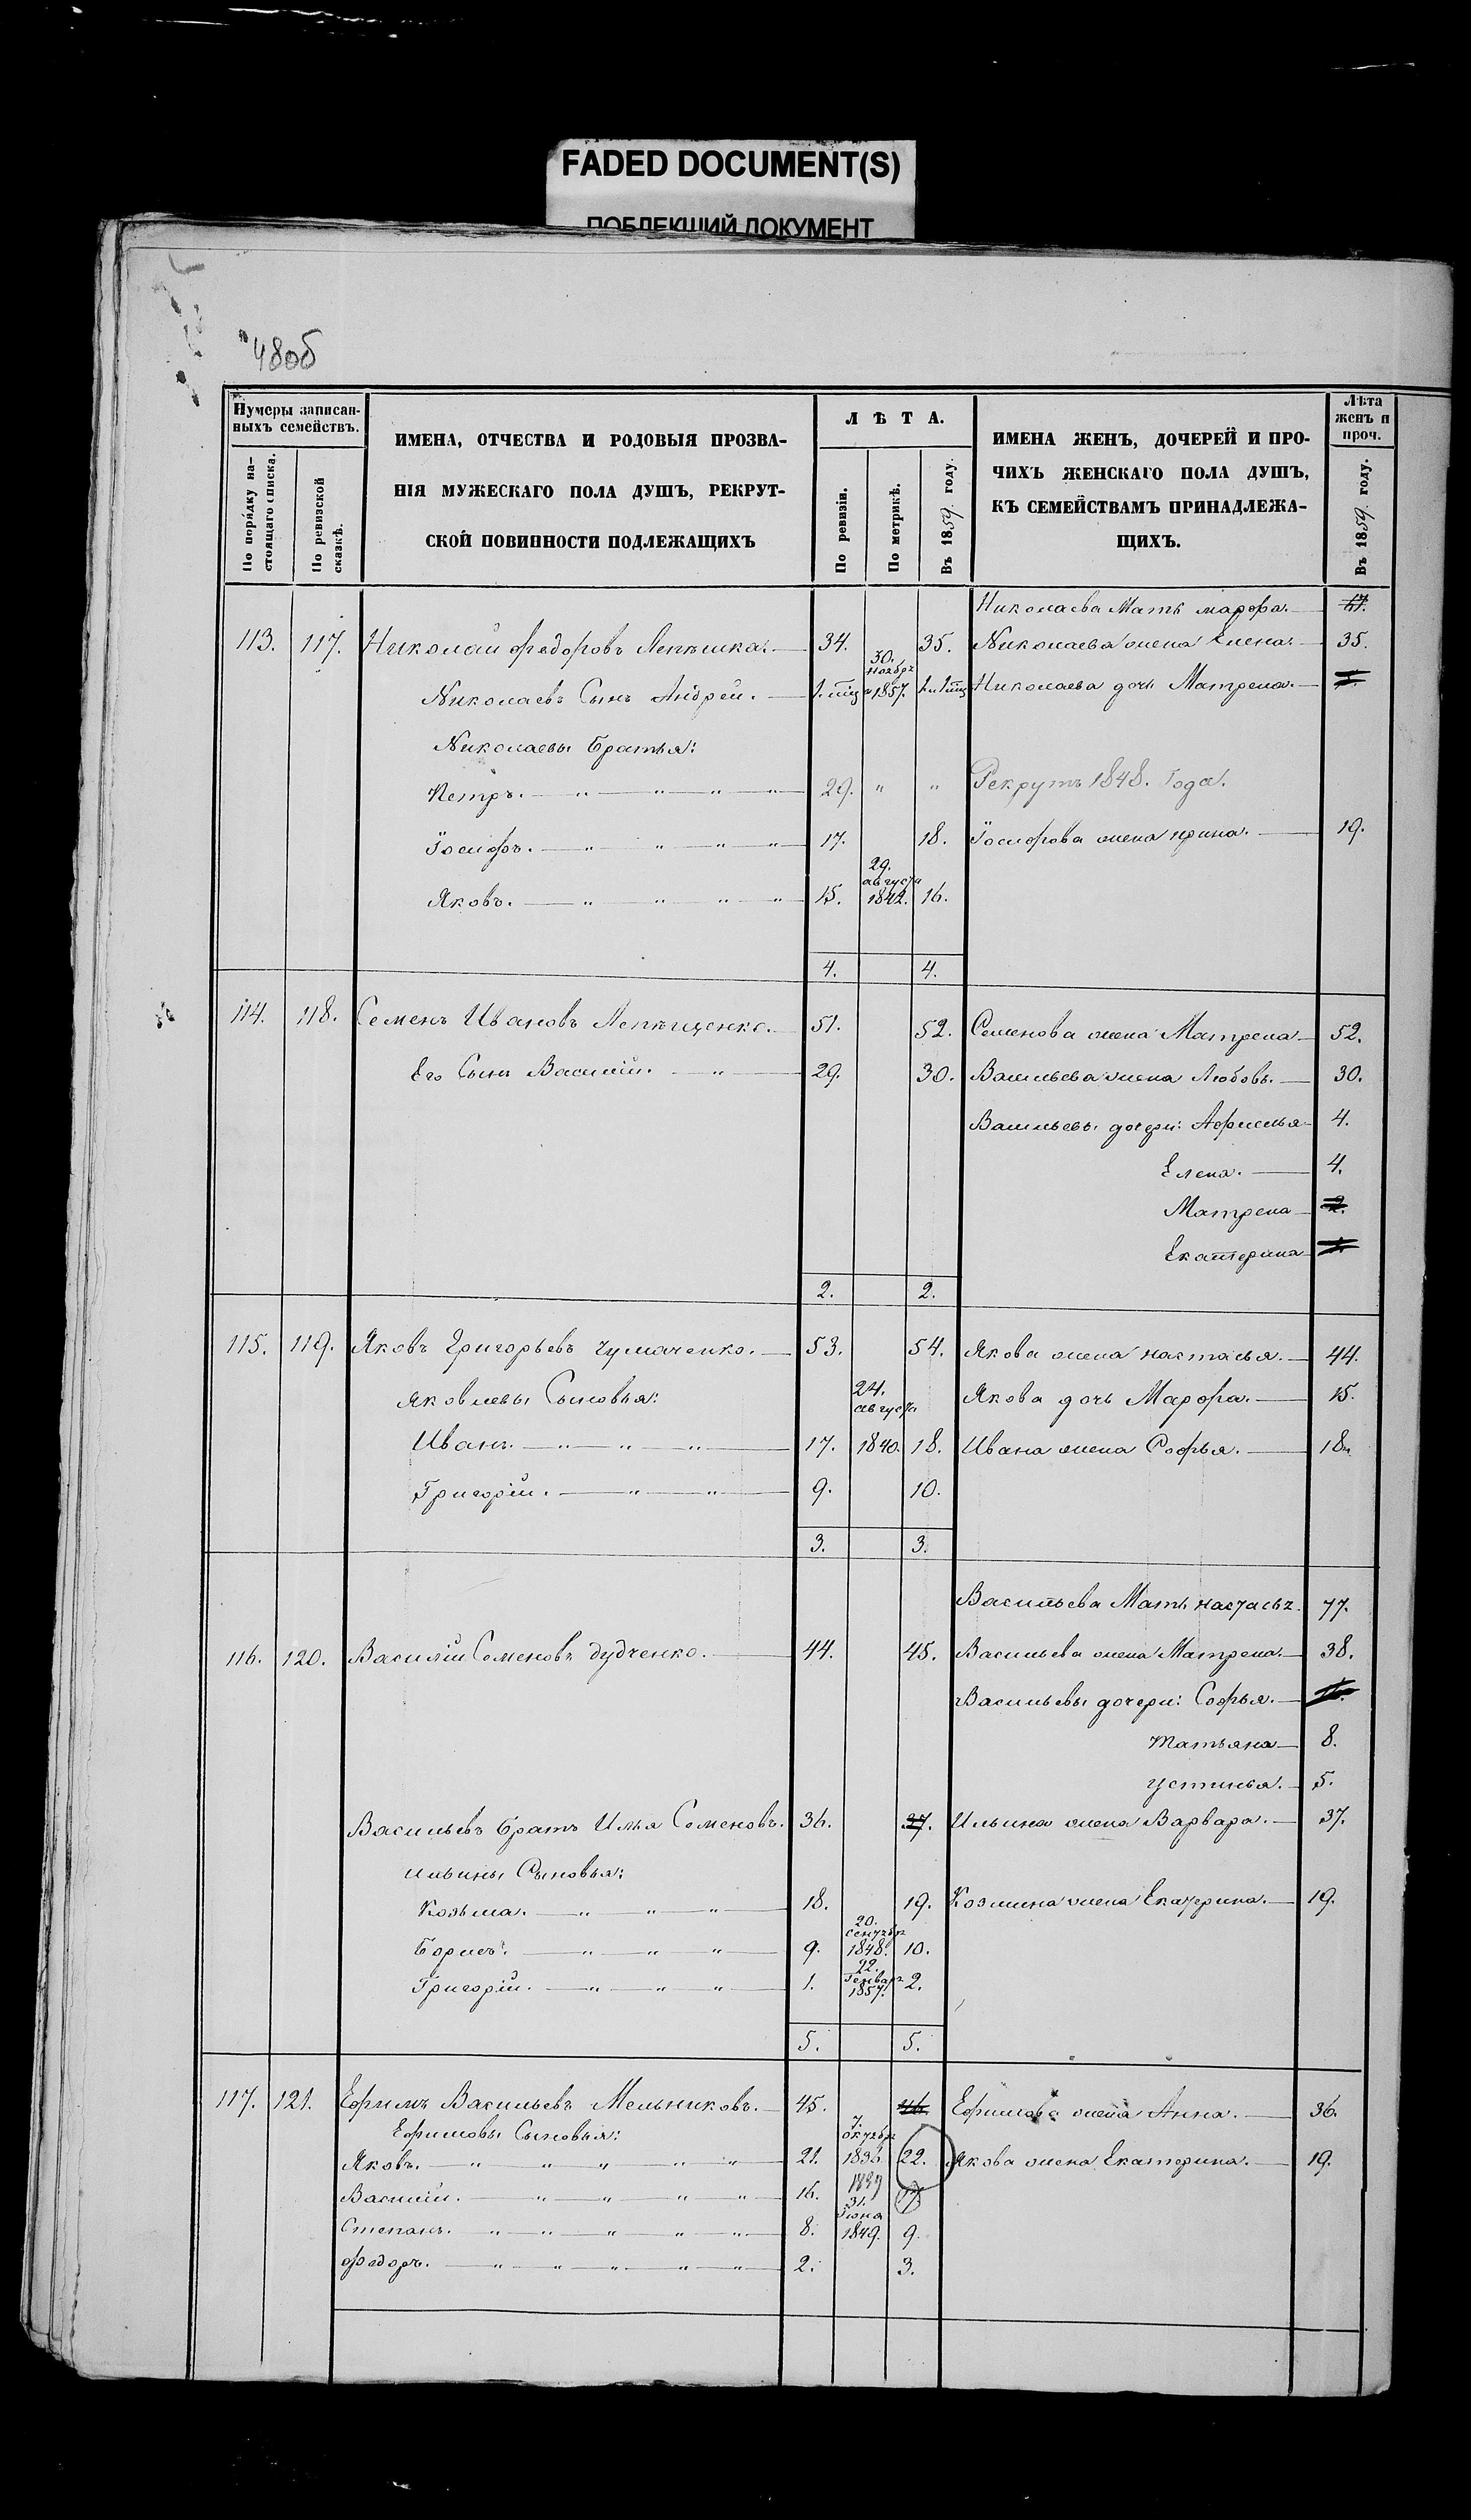 FADED DOCUMENT(S)
ПОБЛЕКШИЙ ДОКУМЕНТ
48об
Нумеры записан-
ныхъ семействъ.
По порядку на-
стоящаго списка.
По ревизской
сказкѣ.
ИМЕНА, ОТЧЕСТВА И РОДОВЫЯ ПРОЗВА-
НІЯ МУЖЕСКАГО ПОЛА ДУШЪ, РЕКРУТ-
СКОЙ ПОВИННОСТИ ПОДЛЕЖАЩИХЪ
ЛѢТА.
По ревизіи.
По метрикѣ.
Въ 1859 году.
ИМЕНА ЖЕНЪ, ДОЧЕРЕЙ И ПРО-
ЧИХЪ ЖЕНСКАГО ПОЛА ДУШЪ,
КЪ СЕМЕЙСТВАМЪ ПРИНАДЛЕЖА-
ЩИХЪ.
Лѣта
женъ и
проч.
Въ 1859 году.
Николаева Мать марфа.
113. 117. Николай федоровъ Лепешка. 34. 35. Николаева жена Елена. 35.
Николаевъ Сынъ Андрей. 30. Ноября 1857. Николаева дочь Матрена.
Николаевы Братья:
Петръ. " " " " 29. " " Рекрутъ 1848. Года.
Іосифъ. " " " " 17. 18. Іосифова жена ирина. 19.
Яковъ. " " " " 15. 29. августа 1842. 16.
4. 4.
114. 118. Семенъ Ивановъ Лепещенко. 51. 52. Семенова жена Матрена 52.
Его Сынъ Василій. " 29. 30. Васильева жена Любовь. 30.
Васильевы дочери: Афимья 4.
Елена. 4.
Матрена 2.
Екатерина
2. 2.
115. 119. Яковъ Григорьевъ Чумаченко. 53. 54. Якова жена настасья. 44.
Яковлевы Сыновья: Якова дочь Марфа. 15.
Иванъ. " " " 17. 24. августа 1840. 18. Ивана жена Софья. 18.
Григорій. " " 9. 10.
3. 3.
Васильева Мать настасья. 77.
116. 120. Василій Семеновъ Дудченко. 44. 45. Васильева жена Матрена. 38.
Васильевы дочери: Софья.
Татьяна 8.
Устинья. 5.
Васильевъ Братъ Илья Семеновъ. 36. 37. Ильина жена Варвара. 37.
Ильины Сыновья:
Козьма. " " " 18. 19. Козмина жена Екатерина. 19.
Борисъ. " " " 9. 20. сентября 1848. 10.
Григорій. " " " 1. 22. Генваря 1857. 2.
5. 5.
117. 121. Ефимъ Васильевъ Мельниковъ. 45. 46. Ефимова жена Анна. 36.
Ефимовы Сыновья:
Яковъ. " " " " " 21. 7. октября 1836 22. Якова жена Екатерина. 19.
Василій. " " " " 16. 1839 17.
Степанъ. " " " " " 8. 31. Іюня 1849. 9.
федоръ. " " " " " 2. 3.